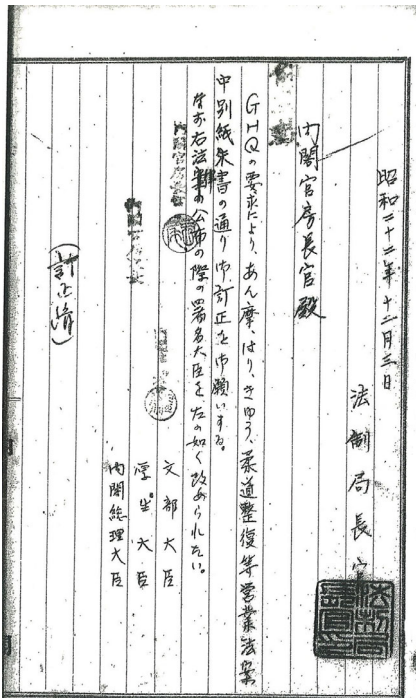 昭和二十二年十二月三日
法制局長官
内閣官房長官殿
GHQの要求により、あん摩、はり、きゅう、柔道整復等営業法案
中別紙朱書の通り御訂正を御願いする。
なお右法律公布の際の署名大臣を左の如く改められたい。
文部大臣
厚生大臣
内閣総理大臣
(訂正済)